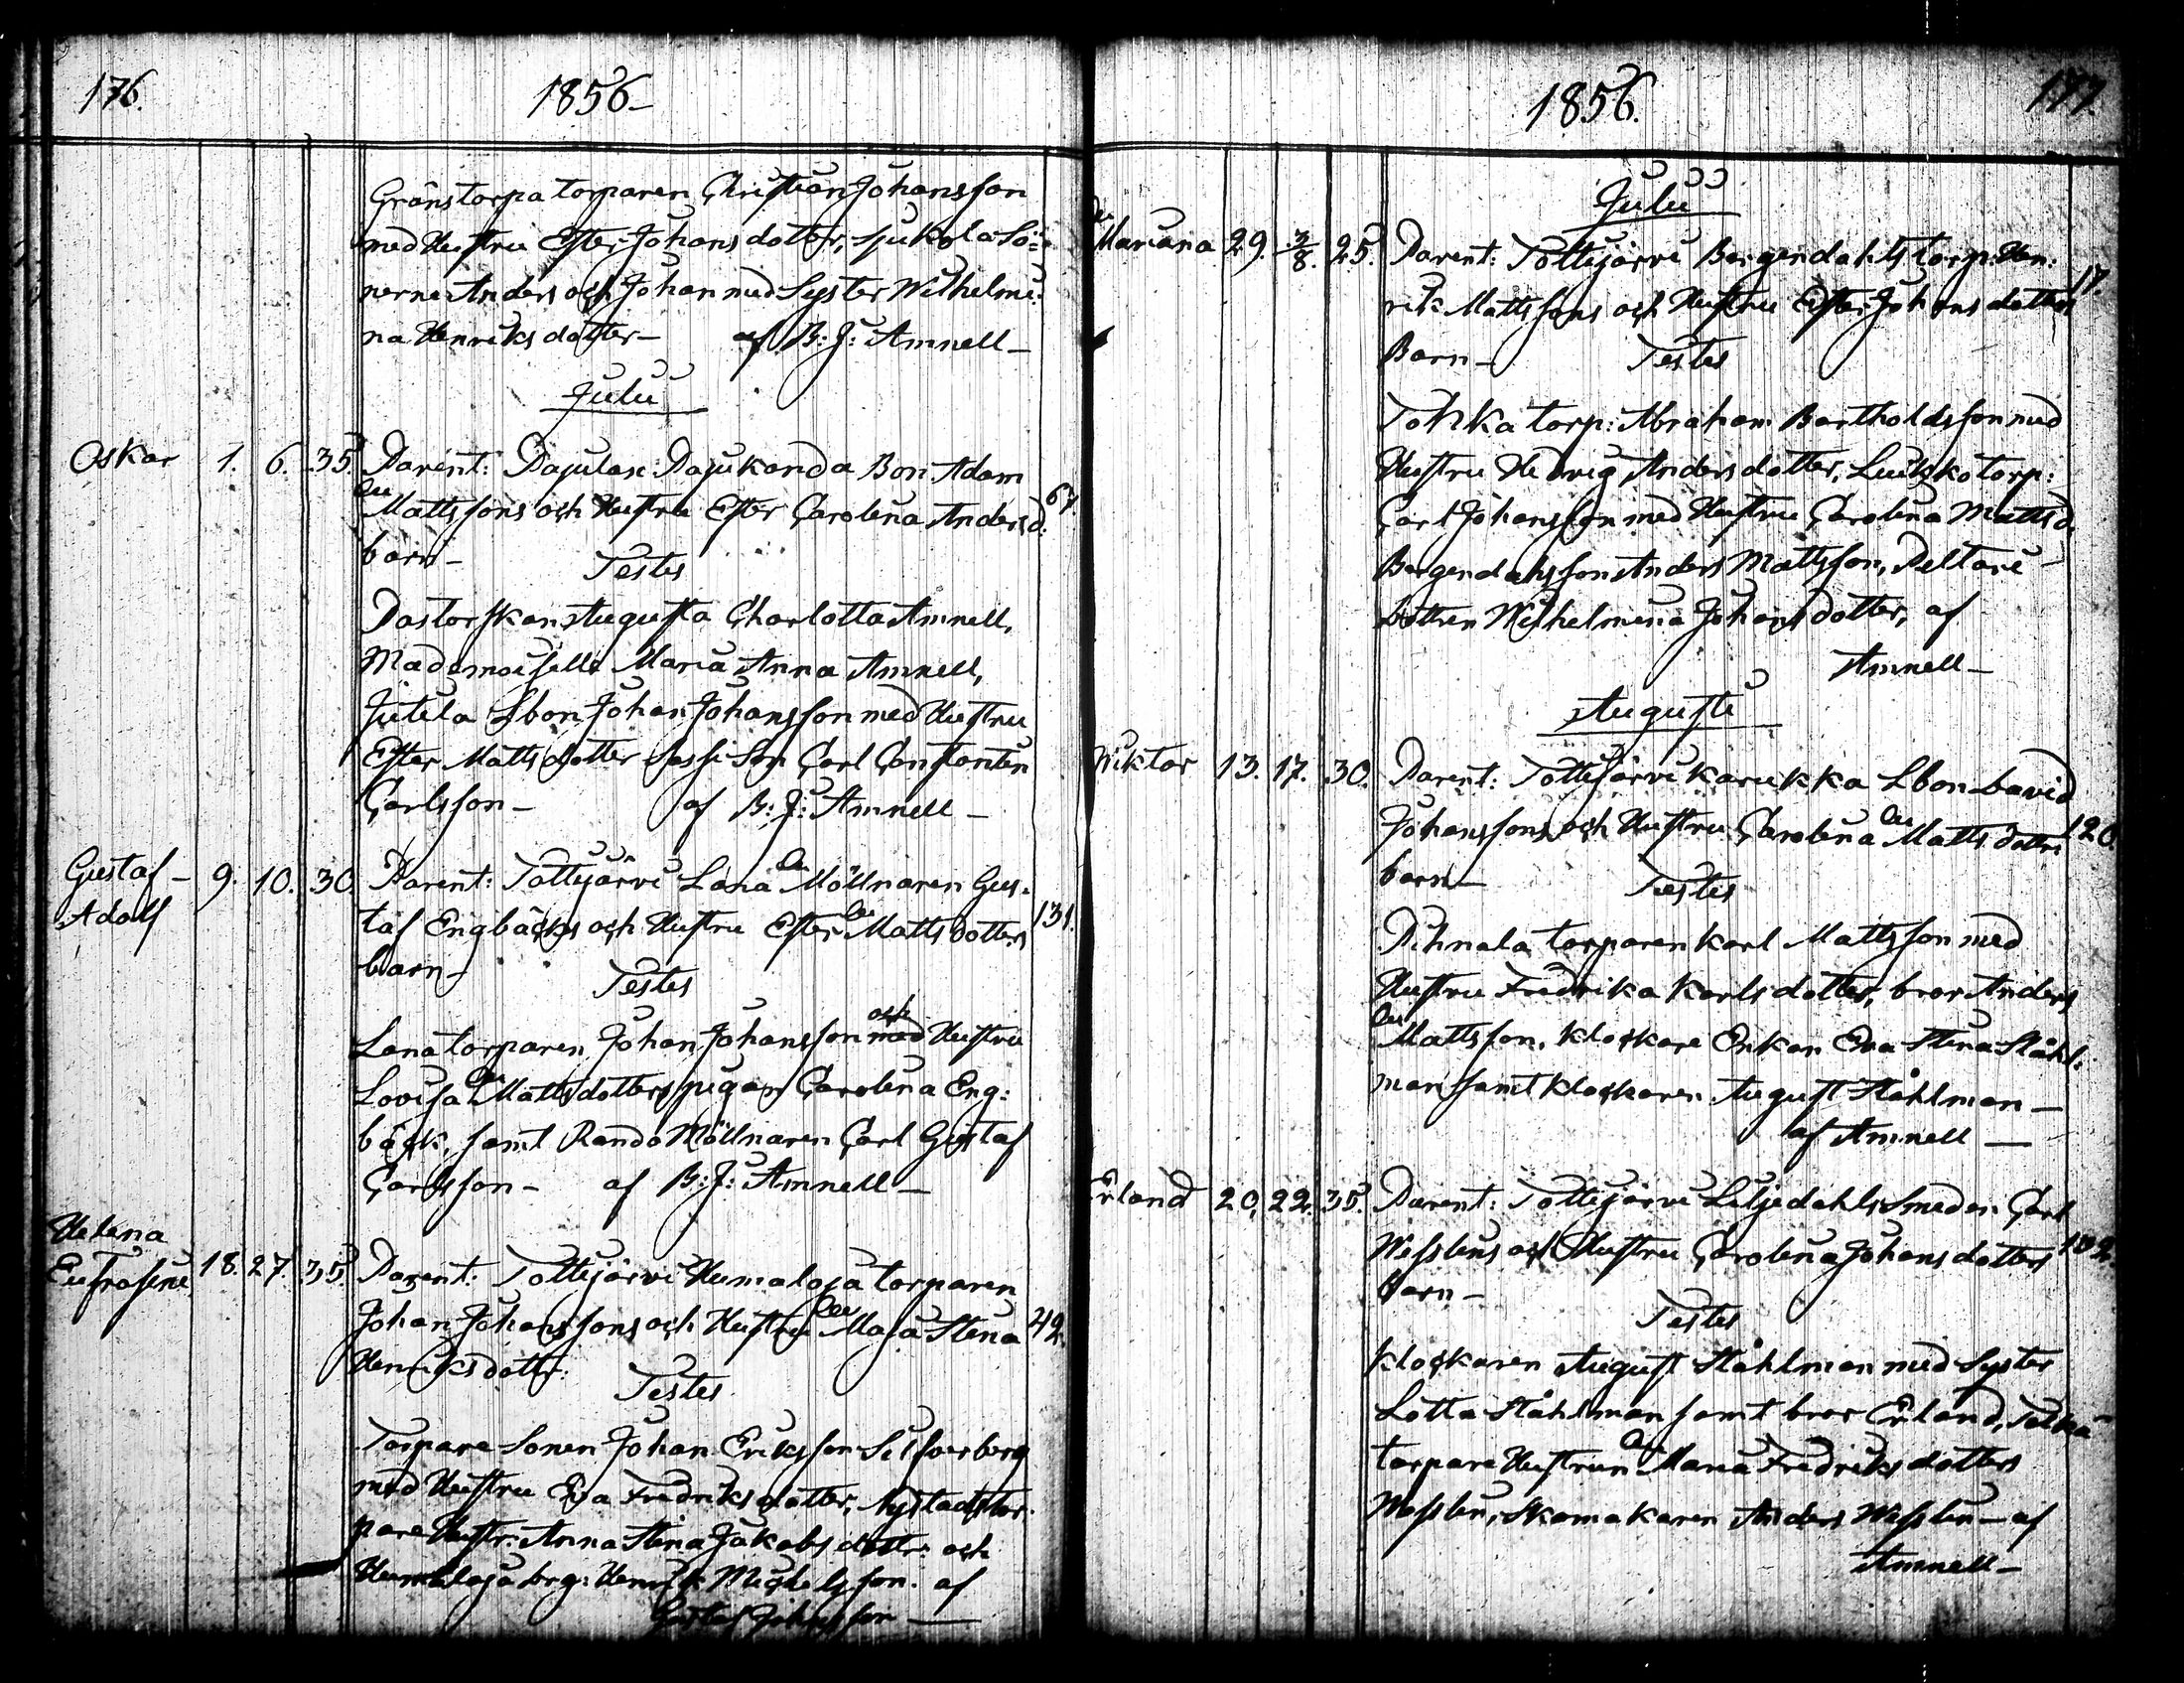 176.
1856-
Gränstorpa torparen Christian Johansson
med Hustru Ester Johansdotter, Sjukola Sö=
nerne Anders och Johan med Syster Wilhelmi:
na Henriksdotter- af B: J: Amnell-
Julii
Oskar 1. 6. 35. Parent: Pajulax: Pajukanda Bon. Adam
Mattssons och Hustru Ester Carolina Andersd: 67
barn- Testes
Pastorskan Augusta Charlotta Amnell,
Mademoiselle Maria Anna Amnell,
Jutila Lbon Johan Johansson med Hustru
Ester Mattsdotter Sassi Son Carl Constantin
Carlsson- af B: J: Amnell-
Gustaf- 9. 10. 30. Parent: Tottijärvi Lana Möllnaren Gus:
Adolf taf Engbäcks och Hustru Ester Matts dotters 131.
barn- Testes
Lana torparen Johan Johansson och Hustru
Lovisa Mattsdotters pigan Carolina Eng:
bäck, samt Rando Möllnaren Carl Gustaf
Carlsson- af B: J: Amnell-
Helena
Eufrosine 18. 27. 35. Parent: Tottijärvi Humaloja torparen
Johan Johanssons och Hustru Maja Stina 42.
Henriksdottr:
Testes
Torpare Sonen Johan Eriksson Silfverberg
med Hustru Eva Fredriksdotter, Nystadstor:
pare Hustr: Anna Stina Jakobs dottr: och
Humaloja drg: Henrik Michelsson. af
Gustaf Johansson-
1856.
177.
Julii
Mariana 29. 3/8. 25. Parent: Tottijärvi Bergendahls torp: Hen:
rik Mattssons och Hustru Ester Johansdotters 17.
Barn- Testes
Tohka torp: Abraham Bartholdsson med
Hustru Hedvig Andersdotter, Luikko torp:
Carl Johansson med Hustru Carolina Mattsd.
Bergendahsson Anders Mattsson, Peltari-
dottren Wilhelmina Johansdotter, af
Amnell-
Augusti
Wiktor 13. 17. 30. Parent: Tottijärvi Karukka Lbon David
Johanssons och Hustru Carolina Matts dottrs 120.
barn- Testes
Pihnala torparen Karl Mattsson med
Hustru Fredrika Karlsdotter, bror Anders
Mattsson, Klockare Enkan Eva Stina Ståhl:
man samt Klockaren August Ståhlman-
af Amnell-
Erland 20. 22. 35. Parent: Tottijärvi Liljedahls Smeden Carl
Wesslins och Hustru Carolina Johans dotters 102.
barn-
Testes
Klockaren August Ståhlman med Syster
Lotta Ståhlman samt bror Erland,
torpare Hustrun Maria Fredriks dotters
Wesslin, Skomakaren Anders Wesslin- af
Amnell-